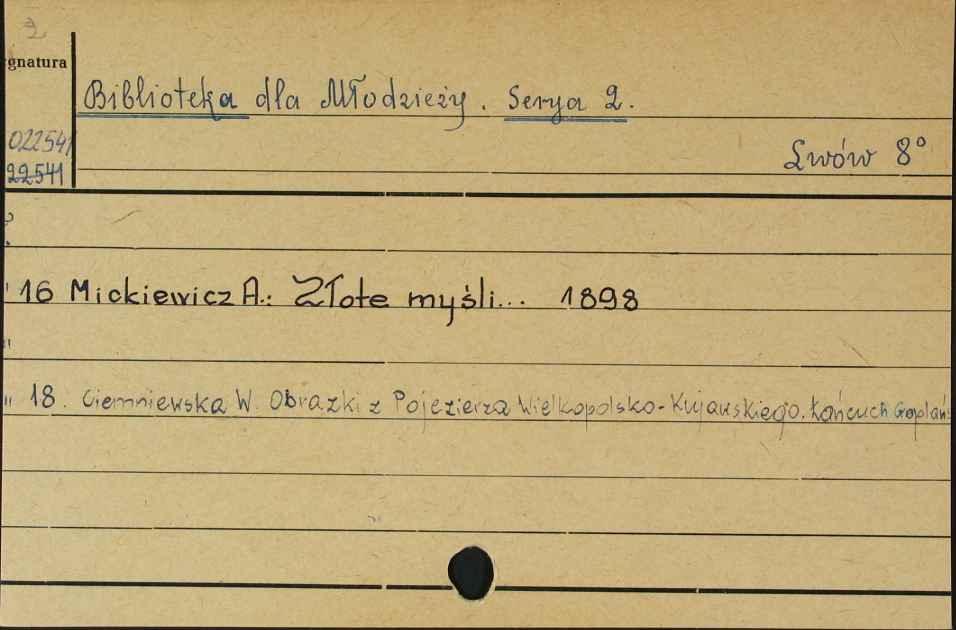 2
gnatura
Biblioteka dla Młodzieży. Serya 2.
022541
Lwów 8°
22541
16 Mickiewicz A.: Złote myśli... 1898
"
" 18. Ciemniewska W. Obrazki z Pojezierza Wielkopolsko-Kujawskiego. Łańcuch Goplańs